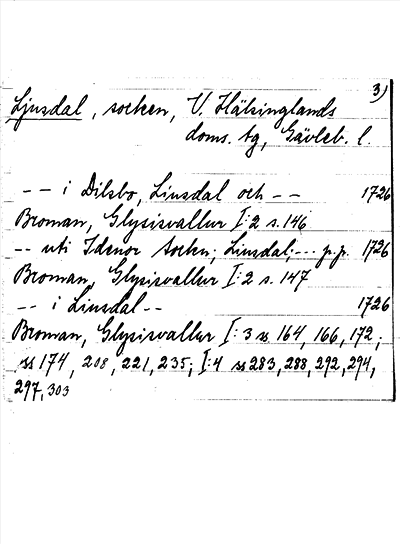 3)
Ljusdal, socken, V. Hälsinglands
doms. tg, Gävleb. l.
-- i Dilsbo, Liusdal och -- 1726
Broman, Glysisvallur I:2 s. 146
-- uti Idenor Sockn; Liusdal; --- p.p. 1726
Broman, Glysisvallur I:2 s. 147
-- i Liusdal -- 1726
Broman, Glysisvallur I:3 ss 164, 166, 172;
ss 174, 208, 221, 235; I:4 ss 283, 288, 292, 294,
297, 303